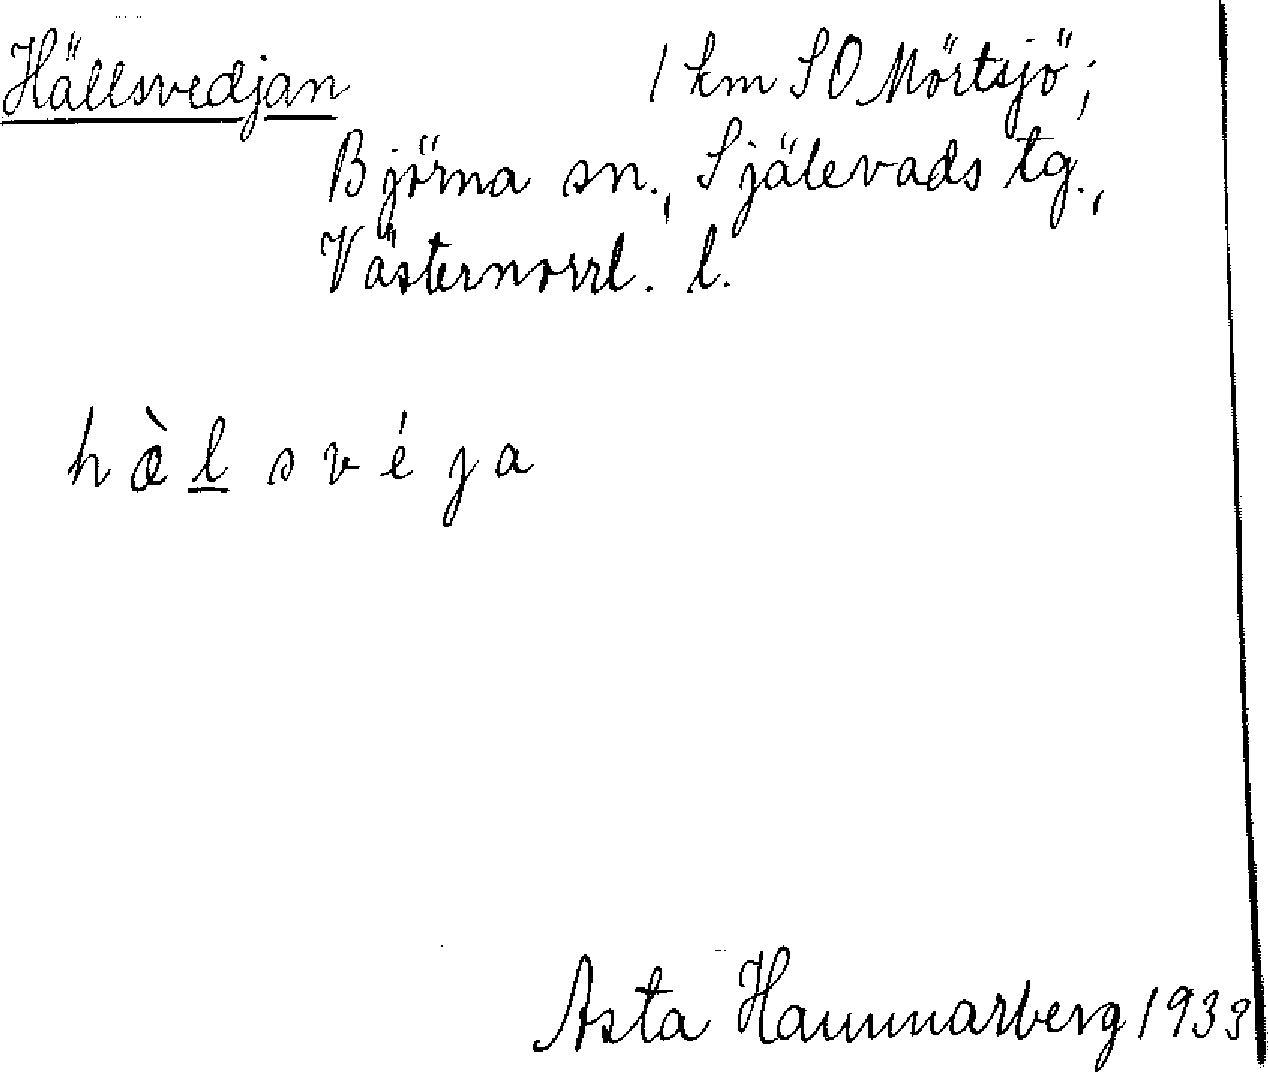 Hällsvedjan 1 km SO Mörtsjö;
Björna sn., Själevads tg.,
Västernorrl. l.
hæ̀l̲svéja
Asta Hammarberg 1933